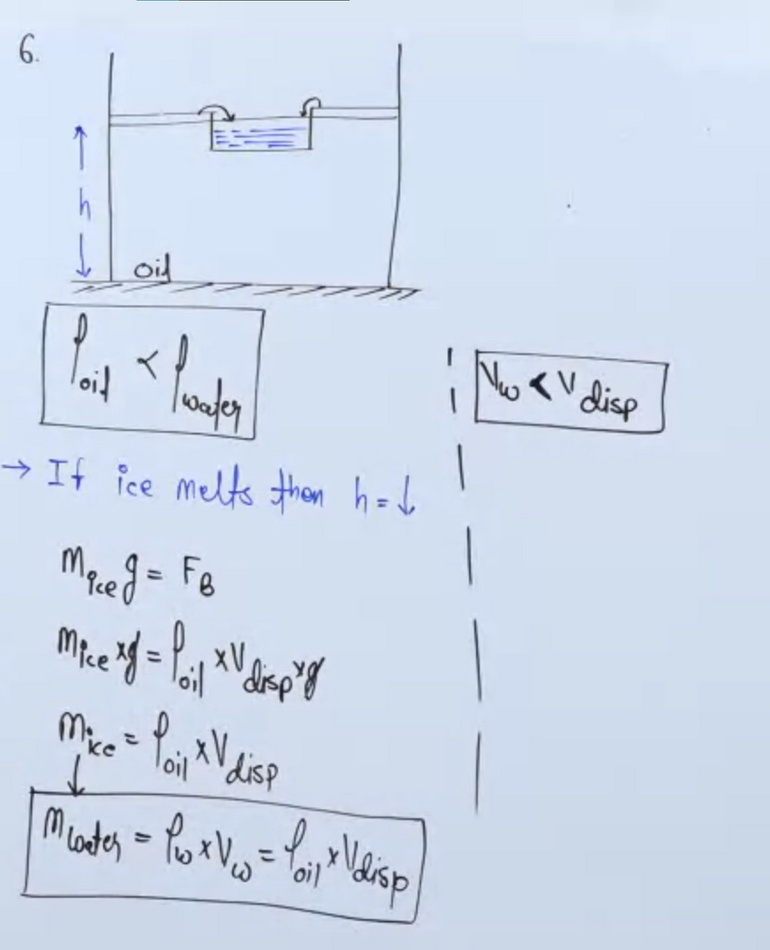 6.
h
oil
ρoil < ρwater
Vw < Vdisp
→ If ice melts then h = ↓
mice g = FB
mice × g = ρoil × Vdisp × g
mice = ρoil × Vdisp
↓
mwater = ρw × Vw = ρoil × Vdisp